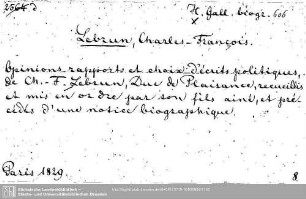 2564 d
H. Gall. biogr. 606
Lebrun, Charles-François.
Opinions, rapports et choix d'écrits politiques,
de Ch.-F. Lebrun, Duc de Plaisance, recueillis
et mis en ordre par son fils ainé, et pré-
cédés d'une notice biographique.
Paris 1829.
8